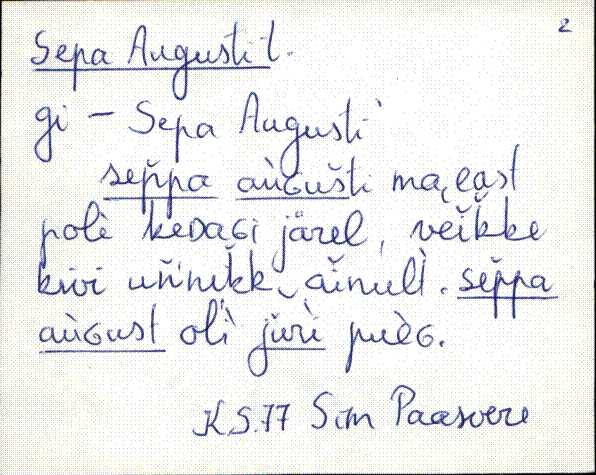 2
Sepa Augusti t.
gi – Sepa Augusti
sep̆pa aùɢušti maj̭east
polè keᴅaɢi järel, vĕĭkke
kivi uńnikk ainult̀. sĕp̆pa
aùɢust oli jüri pŭĕɢ.
K.S.77 Sim Paasvere